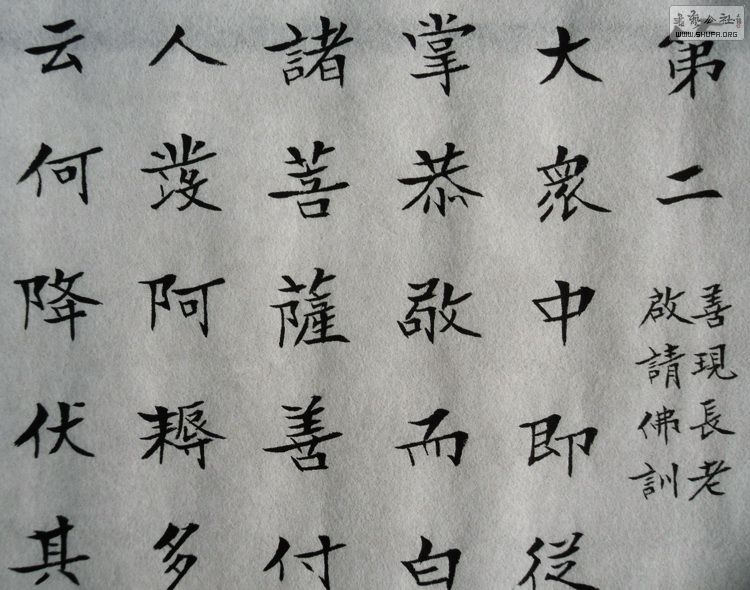 第二
善現長老
啟請佛訓
大衆中即從
掌恭敬而白
諸菩薩善付
人發阿耨多
云何降伏其
書藝公社
WWW.SHUFA.ORG